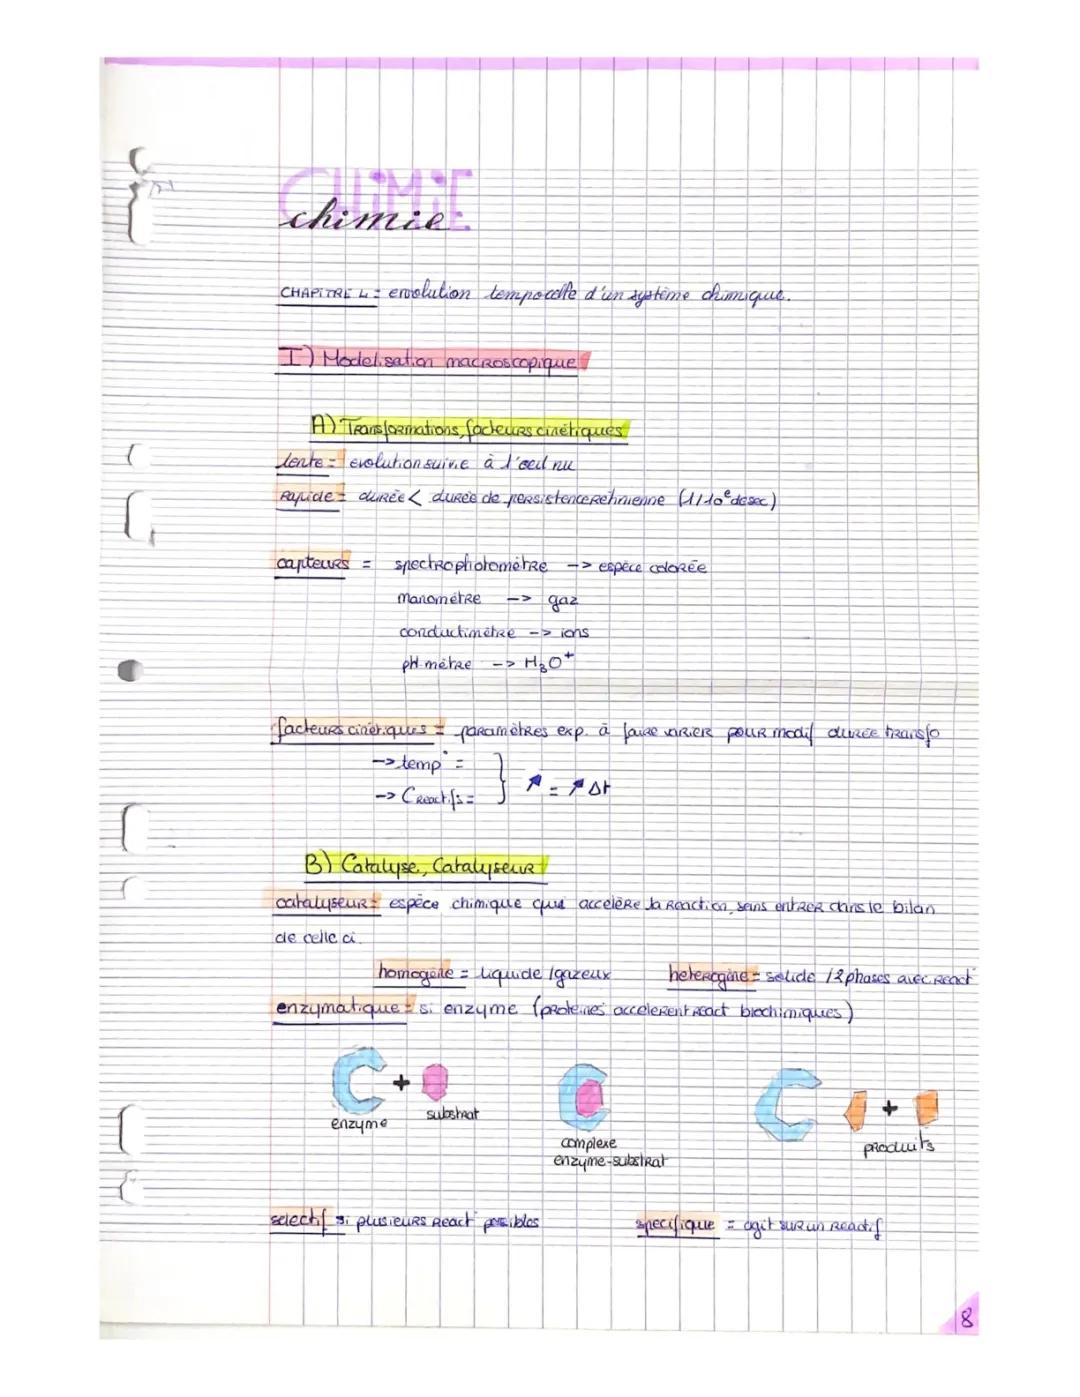 CHIMIE
chimie
CHAPITRE 4 = evolution temporelle d'un système chimique.
I) Modelisation macroscopique
A) Transformations, facteurs cinétiques
lente = evolution suivie à l'oeil nu
Rapide = durée < durée de persistence retinienne (1/10e de sec)
capteurs = spectrophotomètre -> espèce colorée
manomètre -> gaz
conductimètre -> ions
pH mètre -> H3O+
facteurs cinétiques = paramètres exp. à faire varier pour modif durée transfo
-> temp° =
-> C reactifs =
} ↗ = ↗ Δt
B) Catalyse, Catalyseur
catalyseur = espèce chimique qui accelère la reaction, sans entrer dans le bilan
de celle ci.
homogène = liquide / gazeux heterogène = solide / 2 phases avec react°
enzymatique = si enzyme (proteines accelerent react° biochimiques)
+ +
enzyme substrat complexe enzyme-substrat produits
selectif si plusieurs react° possibles specifique = agit sur un reactif
8